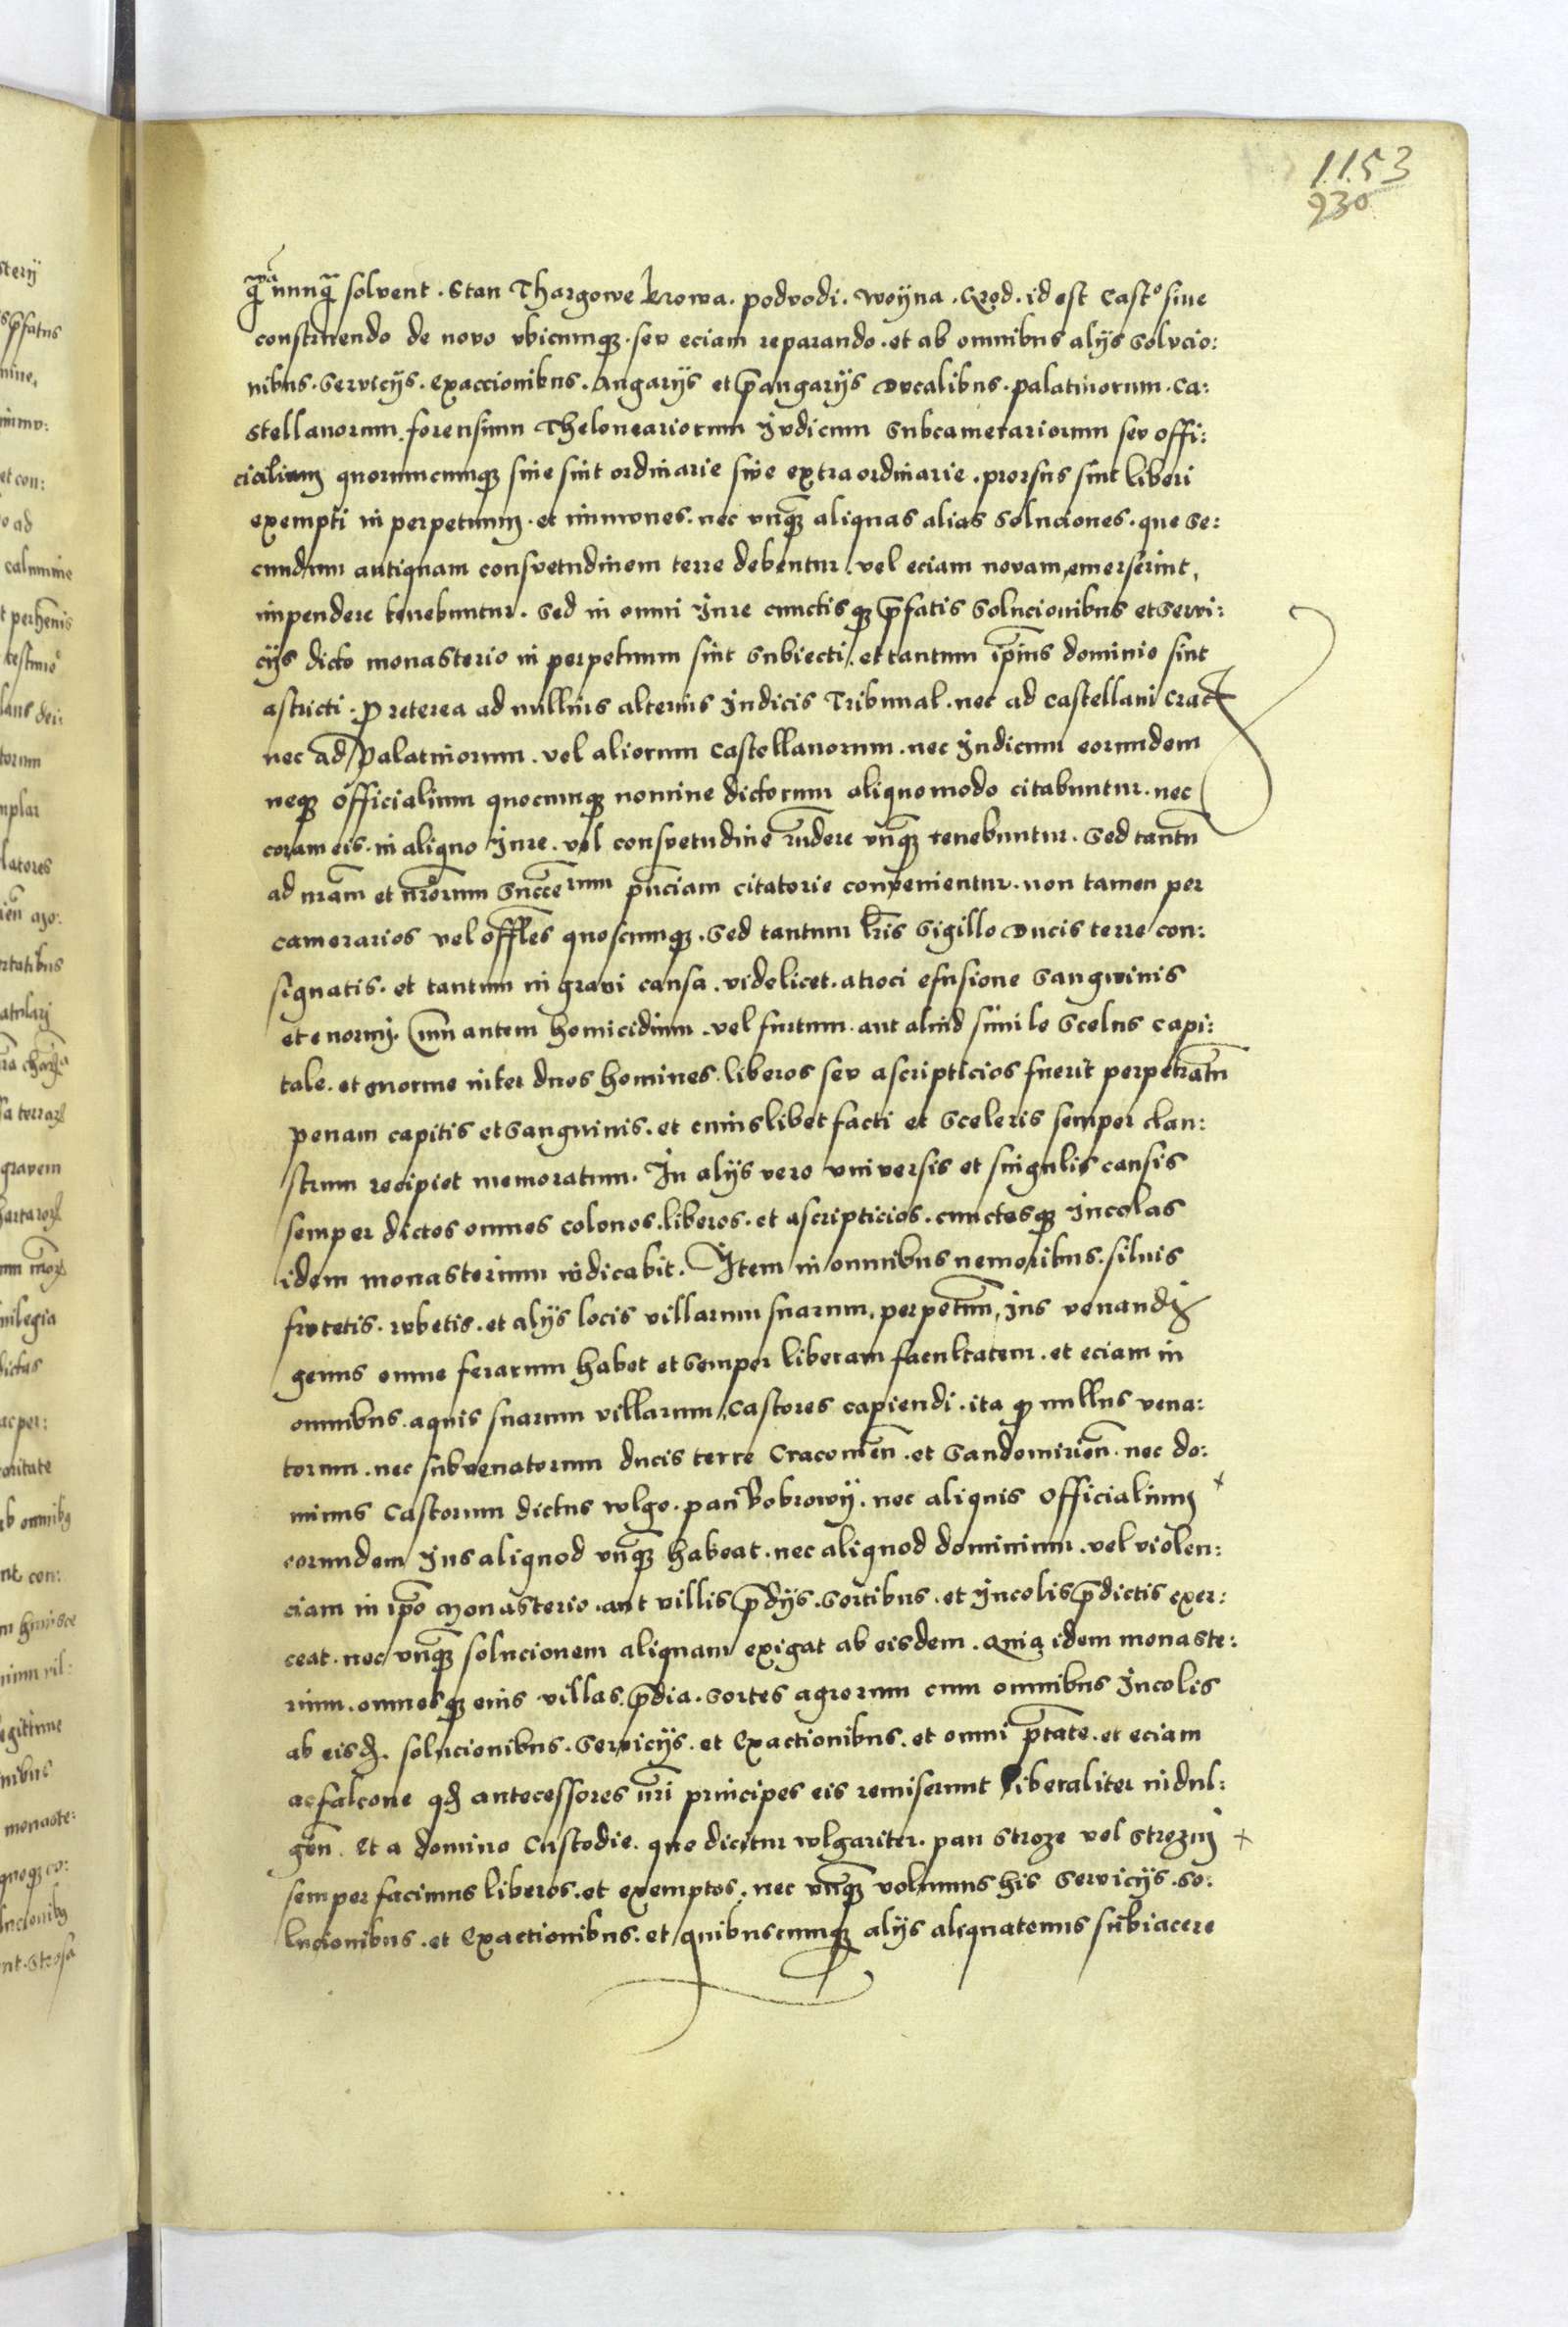 1153
930
q̃ nunq̃ solvent. Stan Thargowe krowa. podvodi. woyna. Grod. id est Castº siue
construendo de novo vbicumqȝ. sev eciam reparando. et ab omnibus alijs Solvcio:
nibus. Servicijs. Exaccionibus. Angarijs et p̃angarijs Dvcalibus. palatinorum. Ca:
stellanorum. forensium Theloneariorum Jvdicum Subcamerariorum sev offi:
cialium quorumcumqȝ siue sint ordinarie siue extraordinarie. prorsus sint liberi
exempti in perpetuum. et immunes. nec vnqȝ aliquas alias Soluciones. que Se:
cundum antiquam consvetudinem terre debentur. vel eciam novam emerserint,
inpendere tenebuntur. Sed in omni Jure cunctisqȝ p̃fatis Solucionibus et Servi:
cijs dicto monasterio in perpetuum sint Subiecti. et tantum ip̃ius dominio sint
astricti. Preterea ad nullius alterius Judicis Tribunal. nec ad Castellani Crac
nec ad Palatinorum. vel aliorum Castellanorum. nec Judicum eorundem
neqȝ officialium quocumqȝ nomine dictorum aliquomodo citabuntur. nec
coram eis. in aliquo Jure. vel consvetudine r̃ndere vnqȝ tenebuntur. Sed tantũ
ad nr̃am et nr̃orum Succerum pñciam citatorie convenientur. non tamen per
camerarios vel offl̃es quoscumqȝ. Sed tantum lr̃is Sigillo Ducis terre con:
signatis. et tantum in gravi causa. videlicet. atroci efusione Sangwinis
et enormj. Cum autem homicidium. vel furtum. aut aliud simile Scelus capi:
tale. et enorme inter duos homines. liberos sev ascripticios fuerit perpetratũ
penam capitis et Sangwinis. et cuiuslibet facti et Sceleris semper clau:
strum recipiet memoratum. In alijs vero vniversis et singulis causis
semper dictos omnes colonos. liberos. et ascripticios. cunctosqȝ Jncolas
idem monasterium iudicabit. Item in omnibus nemoribus. siluis
frvtetis. rvbetis. et alijs locis villarum suarum. perpetuũ, ius venandi
genus omne ferarum habet et Semper liberam facultatem. et eciam in
omnibus. aquis suarum villarum. Castores capiendi. ita qȝ nullus vena:
torum. nec subvenatorum ducis terre Cracouieñ. et Sandomirieñ. nec do:
minus Castorum dictus wlgo. pan Bobrowy. nec aliquis officialium
eorundem Jus aliquod vnqȝ habeat. nec aliquod dominium. vel violen:
ciam in ip̃o Monasterio. aut villis p̃dijs. Sortibus. et Jncolis p̃dictis exer:
ceat. nec vnqȝ solucionem aliquam exigat ab eisdem. Quia idem monaste:
rium. omnesqȝ eius villas. p̃dia. Sortes agrorum cum omnibus Jncolis
ab eisđ. solucionibus. Servicijs. et Exactionibus. et omni p̃tate. et eciam
a falcone qđ antecessores nr̃i principes eis remiserunt liberaliter indul:
geñ. Et a domino Custodie. que dicitur wlgariter. pan Stroze vel Strozni
semper facimus liberos. et exemptos. nec vnqȝ volumus his Servicijs. so:
lucionibus. et Exactionibus. et quibuscumqȝ alijs aliquatenus subiacere